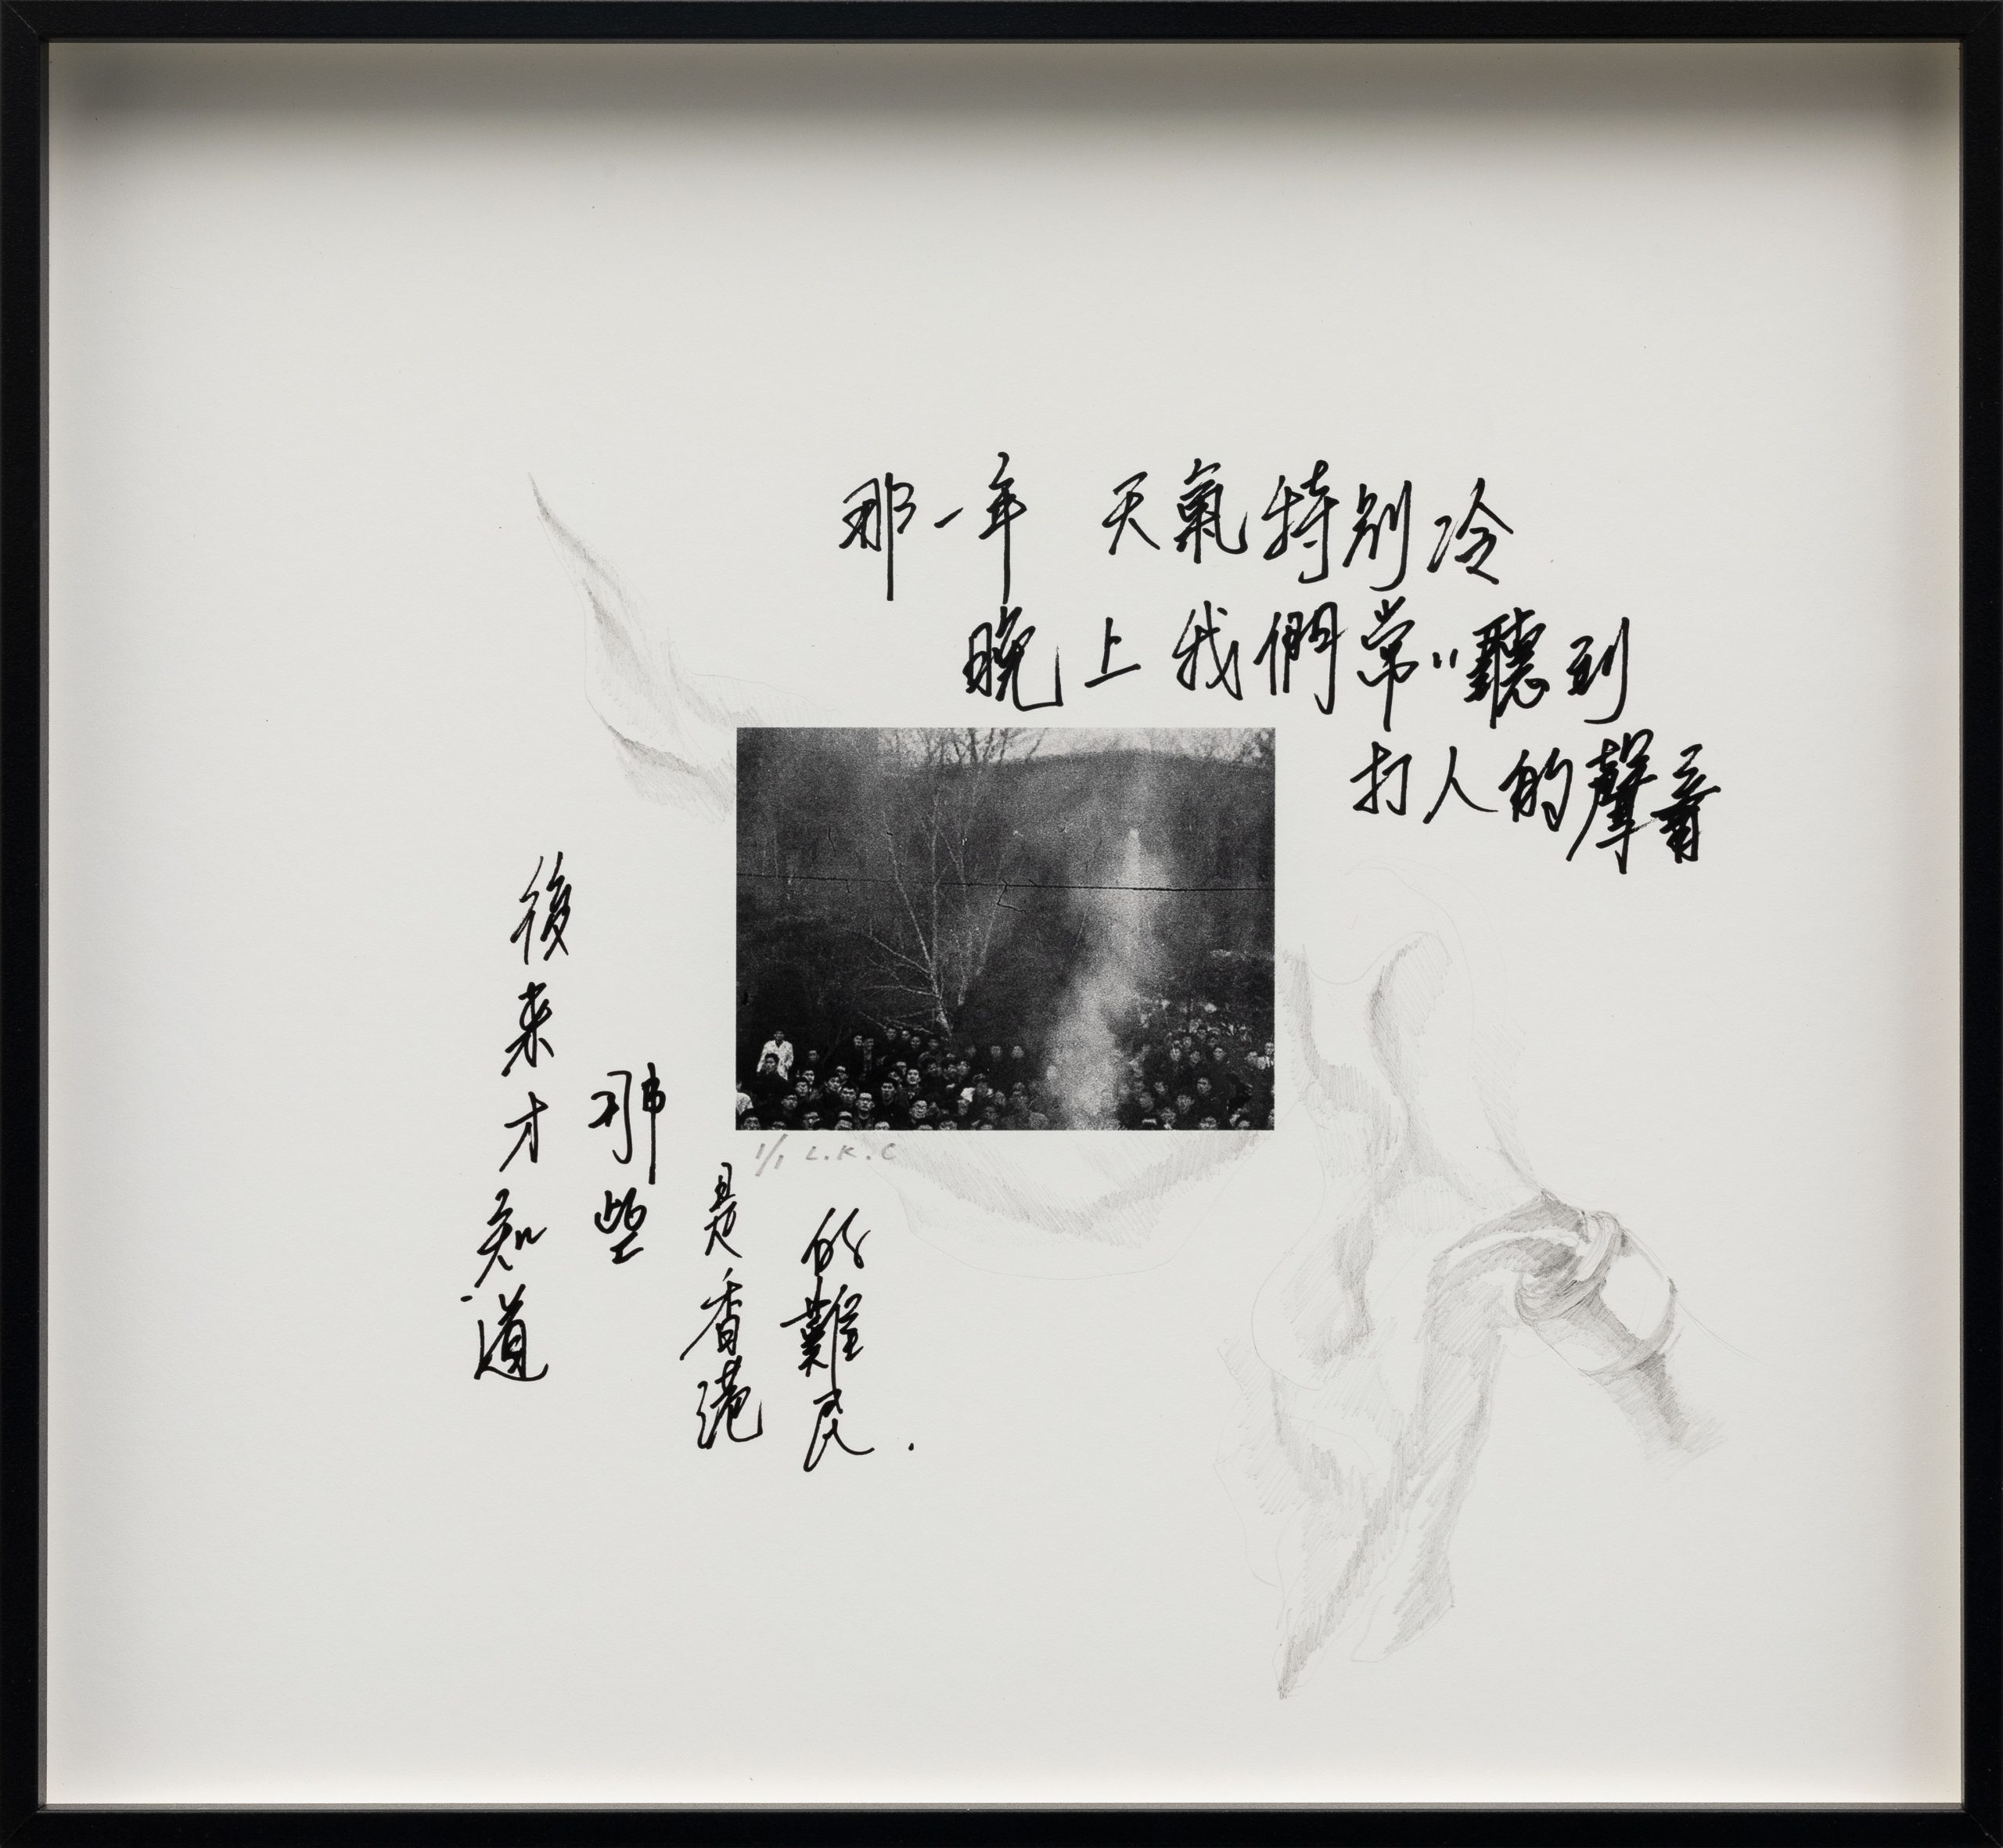 那一年 天氣特別冷
晚上我們常〃聽到
打人的聲音
1/1 L.K.C
後来才知道
那些
是香港
的難民.